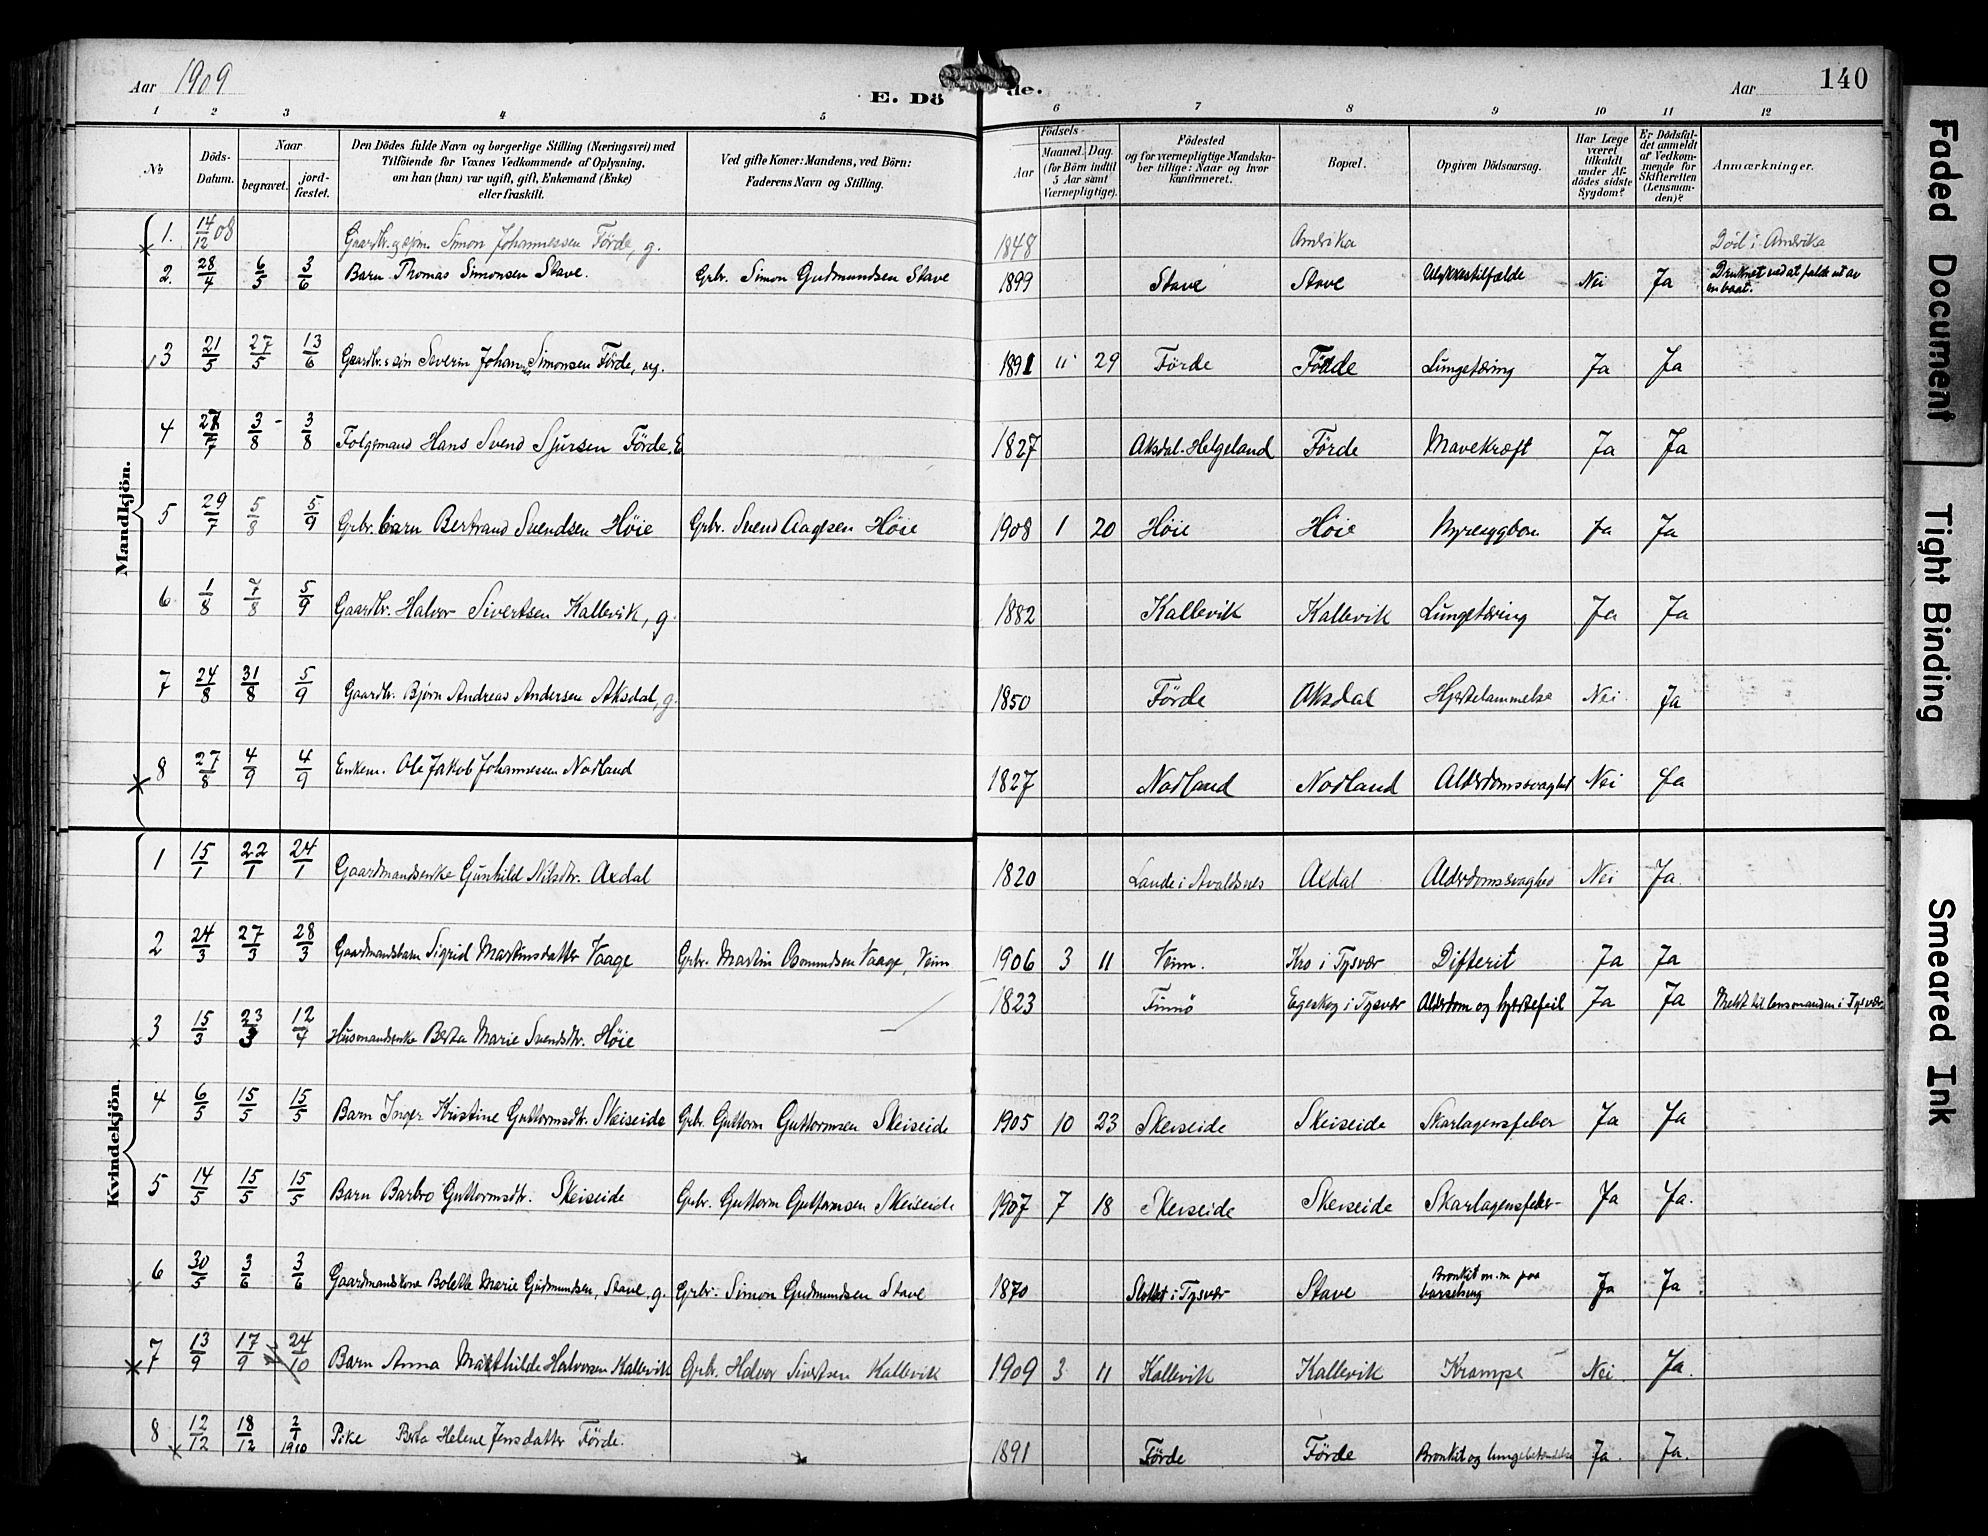 Aar 1909
E. Döde.
Aar
140
1 2 3 4 5 6 7 8 9 10 11 12
No
Döds-Datum.
Naar
begravet.
jord-fæstet.
Den Dödes fulde Navn og borgerlige Stilling (Næringsvei) med
Tilföiende for Voxnes Vedkommende af Oplysning,
om han (hun) var ugift, gift, Enkemand (Enke)
eller fraskilt.
Ved gifte Koner: Mandens, ved Börn:
Faderens Navn og Stilling.
Födsels-
Aar
Maaned. Dag.
(for Börn indtil
5 Aar samt
Værnepligtige).
Födested
og for værnepligtige Mandska-
ber tillige: Naar og hvor
konfirmeret.
Bopæl.
Opgiven Dödsaarsag.
Har Læge
været
tilkaldt
under Af-
dödes sidste
Sygdom?
Er Dödsfal-
det anmeldt
af Vedkom-
mende for
Skifteretten
(Lensman-
den)?
Anmærkninger.
Mandkjön.
1. 14/12 08 Gaardbr. og sjøm. Simon Johannessen Förde, g. 1848 Amerika Död i Amerika
2. 28/4 6/5 3/6 Barn Thomas Simonsen Stave. Grbr. Simon Gudmundsen Stave 1899 Stave Stave Ulykkestilfælde Nei Ja Druknet ved at falde ut av en baat.
3 21/5 27/5 13/6 Gaardbr.s søn Severin Johannes Simonsen Förde, ug. 1891 11 29 Förde Förde Lungetæring Ja Ja
4 27/7 3/8 3/8 Folgemand Hans Svend Sjursen Förde, E 1827 Aksdal-Helgeland Förde Mavekræft Ja Ja
5 29/7 5/8 5/9 Grbr. barn Bertrand Svendsen Höie Grbr. Svend Aagesen Höie 1908 1 20 Höie Höie Ja Ja
6 1/8 7/8 5/9 Gaardbr. Halvor Sivertsen Kallevik, g. 1882 Kallevik Kallevik Lungetæring Ja Ja
7 24/8 31/8 5/9 Gaardbr. Bjørn Andreas Andersen Aksdal, g. 1850 Förde Aksdal Hjertelammelse Nei Ja
8 27/8 4/9 4/9 Enkem. Ole Jakob Johannessen Nodland 1827 Nodland Nodland Alderdomssvaghed Nei Ja
Kvindekjön.
1 15/1 22/1 24/1 Gaardmandsenke Gunhild Nilsdtr. Axdal 1820 Lande i Avaldsnes Axdal Alderdomssvaghed Nei Ja.
2 24/3 27/3 28/3 Gaardmandsbarn Sigrid Martinsdatter Vaage Grbr. Martin Osmundsen Vaage, Veim 1906 3 11 Veim. Kro i Tysvær Difterit Ja Ja
3 15/3 23/3 12/4 Husmandsenke Berta Marie Svendsdtr. Höie 1823 Finnø Egeskog i Tysvær Alderdom og hjertefeil Ja Ja Meldt til lensmanden i Tysvær
4 6/5 15/5 15/5 Barn Inger Kristine Guttormsdtr. Skeiseide Grbr. Guttorm Guttormsen Skeiseide 1905 10 23 Skeiseide Skeiseide Skarlagensfeber Ja Ja
5 14/5 15/5 15/5 Barn Barbro Guttormsdtr. Skeiseide Grbr. Guttorm Guttormsen Skeiseide 1907 7 18 Skeiseide Skeiseide Skarlagensfeber Ja Ja.
6 30/5 3/6 3/6 Gaardmandskone Bolette Marie Gudmundsen, Stave, g. Grbr. Simon Gudmundsen Stave 1870 i Tysvær Stave Bronkit m.m paa barselseng Ja Ja.
7 13/9 17/9 24/10 Barn Anna Mathilde Halvorsen Kallevik Grbr. Halvor Sivertsen Kallevik 1909 3 11 Kallevik Kallevik Krampe Nei. Ja.
8 12/12 18/12 2/1 1910 Pike Berta Helene Jensdatter Förde. 1891 Förde Förde Bronkit og lungebetændelse Ja. Ja.
Faded Document
Tight Binding
Smeared Ink